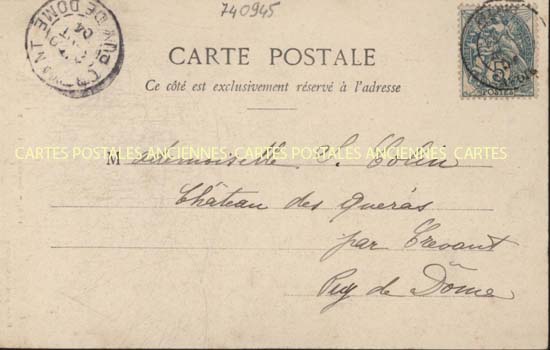 740945
CARTE POSTALE
Ce côté est exclusivement réservé à l'adresse
Mademoiselle S. Colin
CARTES POSTALES ANCIENNES CARTES POSTALES ANCIENNES CARTES
Château des Queras
par Crevant
Puy de Dôme
PUY DE DOME
5
POSTES